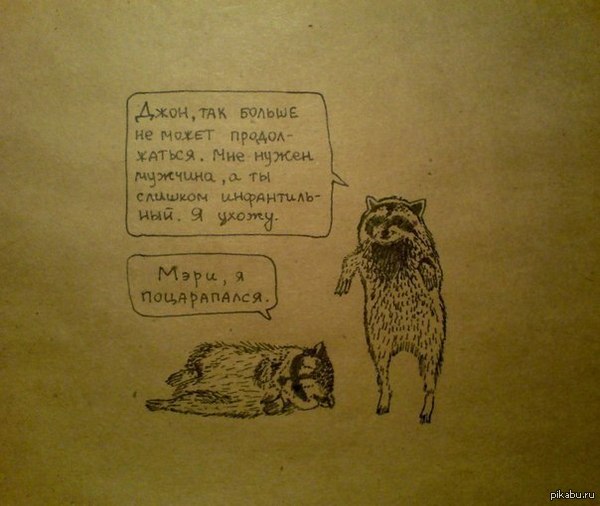 Джон, так больше
не может продол-
жаться. Мне нужен
мужчина, а ты
слишком инфантиль-
ный. Я ухожу.
Мэри, я
поцарапался.
pikabu.ru